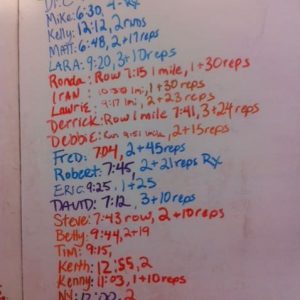 Dr. C
Mike: 6:30, 4- Rx
Kelly: 12:12, 2 rnds
Matt: 6:48, 2+17 reps
LARA: 9:20, 3+10 reps
Ronda: Row 7:15 1 mile, 1+30 reps
IRAN 10:30 1mi, 1+30 reps
Lawrie 9:17 1mi, 2+23 reps
Derrick: Row 1 mile 7:41, 3+24 reps
Debbie: Run 9:51 1mile, 2+15 reps
FRED: 7:04, 2+45 reps
Robert: 7:45, 2+21 reps Rx
ERIC: 9:25, 1+25
DAVID: 7:12, 3+10 reps
Steve: 7:43 row, 2+10 reps
Betty: 9:44, 2+19
TIM: 9:15,
Keith: 12:55, 2
Kenny: 11:03, 1+10 reps